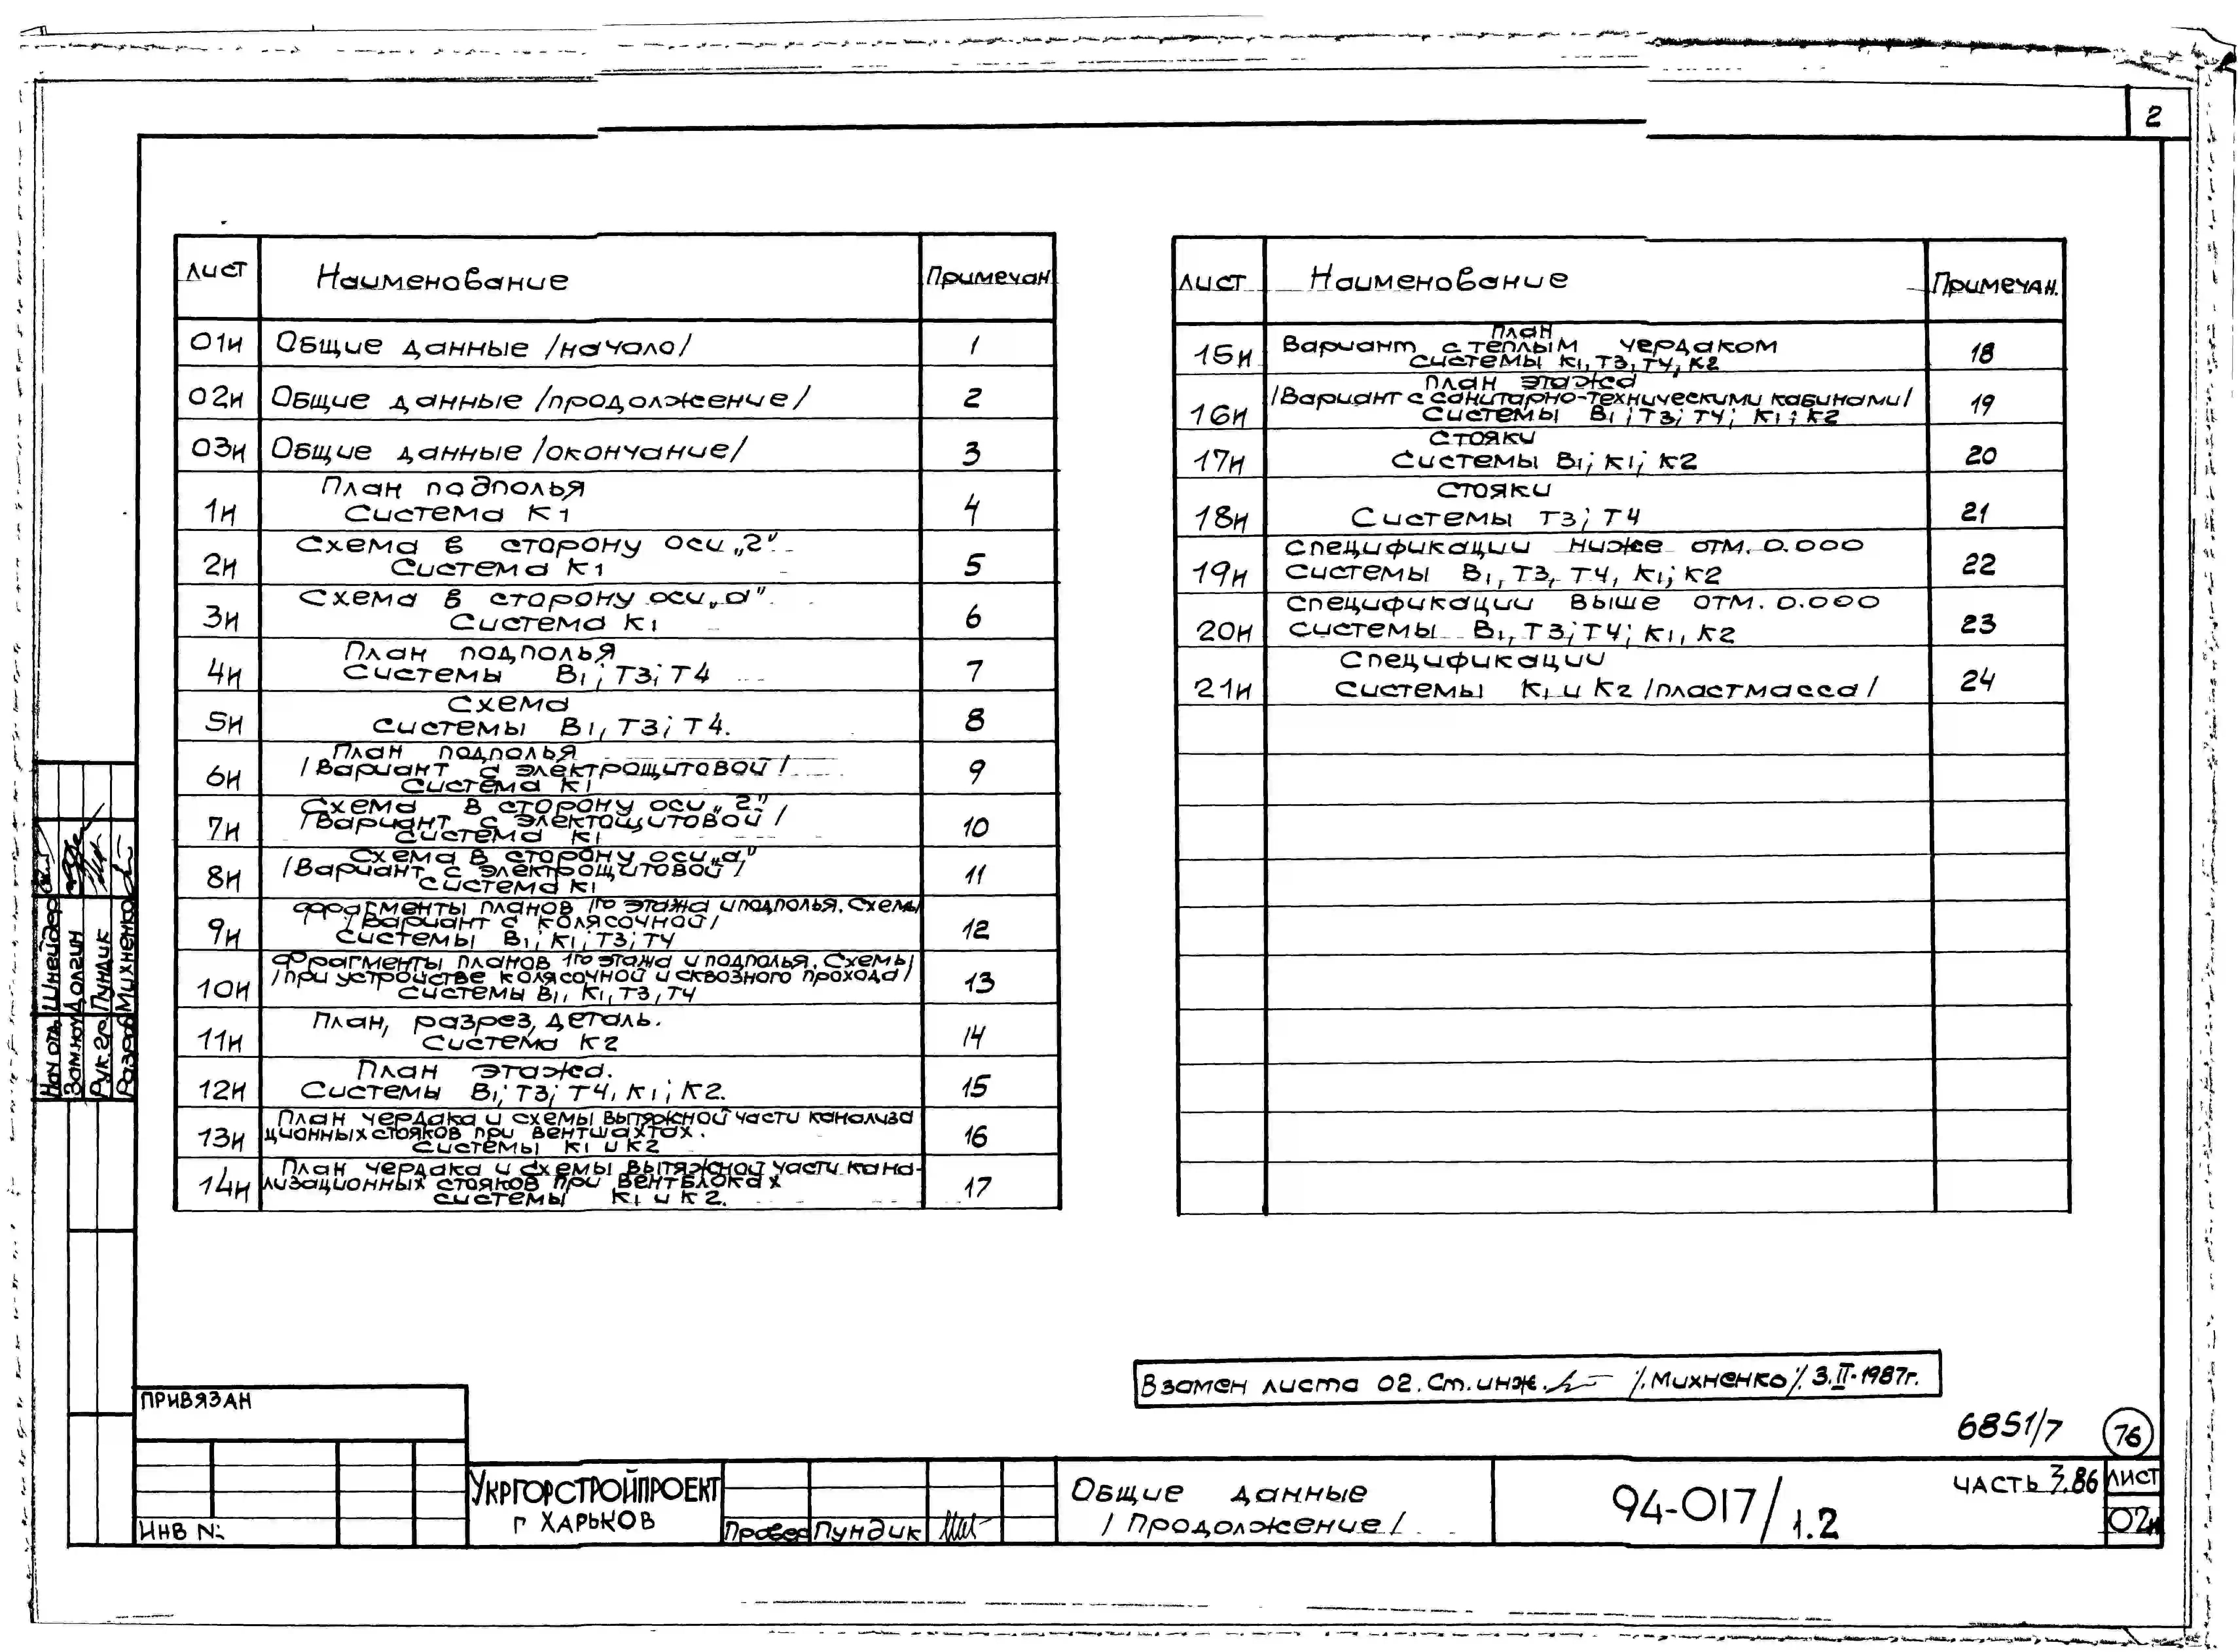 2
Лист Наименование Примечан
01и Общие данные /начало/ 1
02и Общие данные /продолжение/ 2
03и Общие данные /окончание/ 3
План подполья
1и Система К1 4
Схема в сторону оси „г"
2и Система К1 5
Схема в сторону оси „а"
3и Система К1 6
План подполья
4и Системы В1; Т3; Т4 7
Схема
5и Системы В1, Т3; Т4. 8
План подполья
/Вариант с электрощитовой/
6и Система К1 9
Схема в сторону оси „г"
/Вариант с электощитовой/
7и Система К1 10
Схема в сторону оси „а"
/Вариант с электрощитовой/
8и Система К1 11
Фрагменты планов 1го этажа и подполья. Схемы
/Вариант с колясочной/
9и Системы В1; К1; Т3; Т4 12
Фрагменты планов 1го этажа и подполья. Схемы
/при устройстве колясочной и сквозного прохода/
10и Системы В1, К1, Т3, Т4 13
План, разрез, деталь.
11и Система К2 14
План этажа.
12и Системы В1; Т3; Т4, К1; К2. 15
План чердака и схемы вытяжной части канализа
13и ционных стояков при вентшахтах. 16
Системы К1 и К2
План чердака и схемы вытяжной части кана-
14и лизационных стояков при вентблоках 17
Системы К1 и К2.
Лист Наименование Примечан.
План
15и Вариант с теплым чердаком 18
Системы К1, Т3, Т4, К2
План этажа
/Вариант с санитарно-техническими кабинами/
16и Системы В1; Т3; Т4; К1; К2 19
Стояки
17и Системы В1; К1; К2 20
Стояки
18и Системы Т3; Т4 21
Спецификации ниже отм. 0.000
19и Системы В1, Т3, Т4, К1; К2 22
Спецификации выше отм. 0.000
20и Системы В1, Т3; Т4; К1, К2 23
Спецификации
21и Системы К1 и К2 /пластмасса/ 24
Нач отд. Шнейдер
Зам.нач Долгин
Рук.гр. Пундик
Разраб Михненко
Взамен листа 02. Ст. инж. /.Михненко/. 3.II-1987г.
6851/7 76
ПРИВЯЗАН
ИНВ №:
УКРГОРСТРОЙПРОЕКТ
г ХАРЬКОВ
Провер Пундик
Общие данные
/Продолжение/
94-017/1.2
ЧАСТЬ 3.86
ЛИСТ
02и